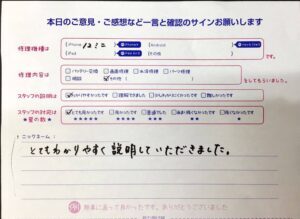 本日のご意見・ご感想など一言と確認のサインお願いします
修理機種は
iPhone 12ミニ
Android
iPad
その他
修理内容は
バッテリー交換 画面修理 水没修理 パーツ修理
相談 その他
をしてもらいました。
スタッフの説明は
わかりやすかったです 理解できました 少しわかりにくかったです わかりにくかったです
スタッフの対応は
★の数★
とても良かったです 良かったです 普通でした
ニックネーム：
とてもわかりやすく説明していただきました。
修理に送って良かったです。ありがとうございました